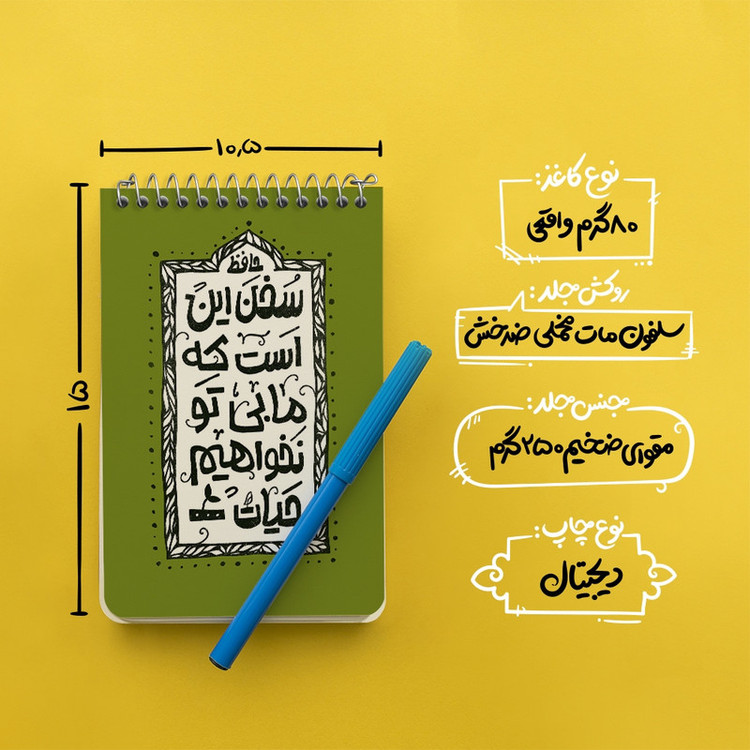 ۱۰,۵
۱۵
حافظ
سُخَن این
است که
ما بی تو
نخواهیم
حیات
نوع کاغذ:
۸۰ گرم واقعی
روکش جلد:
سلفون مات مخملی ضدخش
جنس جلد:
مقوای ضخیم ۲۵۰ گرم
نوع چاپ:
دیجیتال